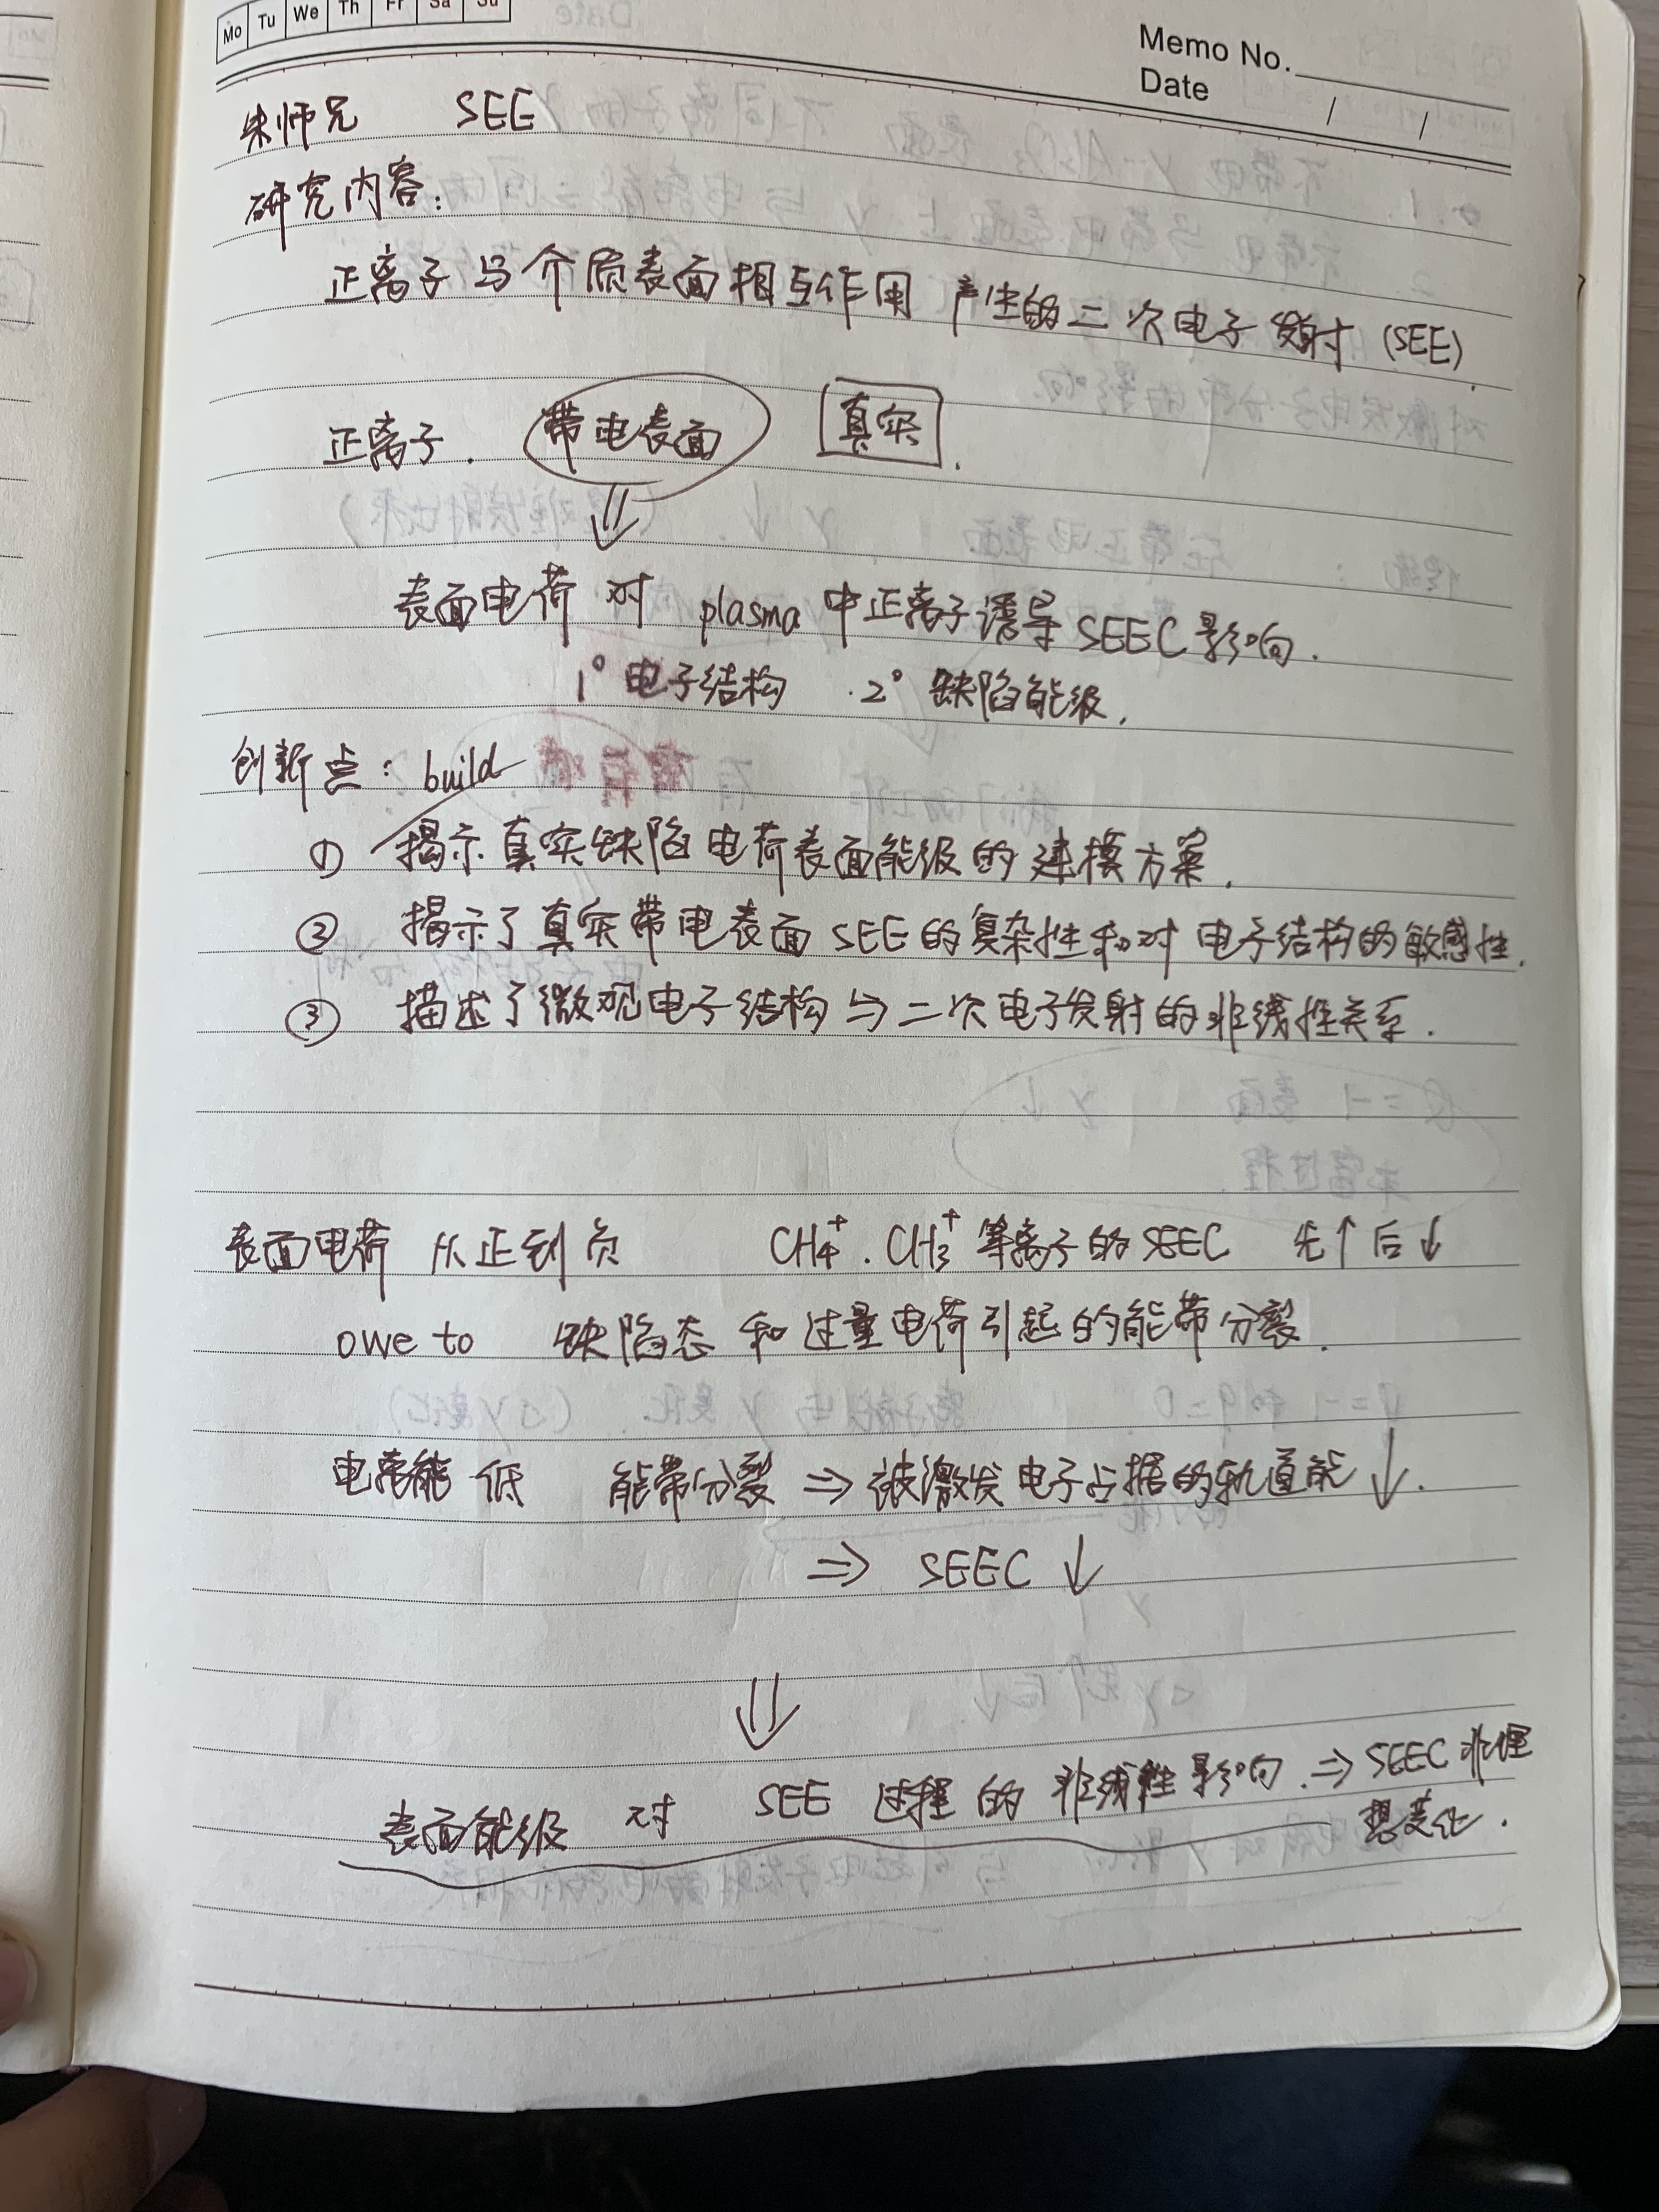 Mo Tu We Th Fr Sa Su
Memo No.
Date / /
朱师兄 SEE
研究内容:
正离子与介质表面相互作用产生的二次电子发射 (SEE).
正离子. 带电表面 真实.
⇓
表面电荷对 plasma 中正离子诱导 SEEC 影响.
1° 电子结构 . 2° 缺陷能级.
创新点: build
① 揭示真实缺陷电荷表面能级的建模方案.
② 揭示了真实带电表面 SEE 的复杂性和对电子结构的敏感性.
③ 描述了微观电子结构与二次电子发射的非线性关系.
表面电荷 从正到负 CH₄⁺. CH₃⁺ 等离子的 SEEC 先↑后↓
owe to 缺陷态和过量电荷引起的能带分裂.
电离能低 能带分裂 ⇒ 被激发电子占据的轨道能↓.
⇒ SEEC ↓
⇓
表面能级 对 SEE 过程的非线性影响. ⇒ SEEC 非理
想变化.